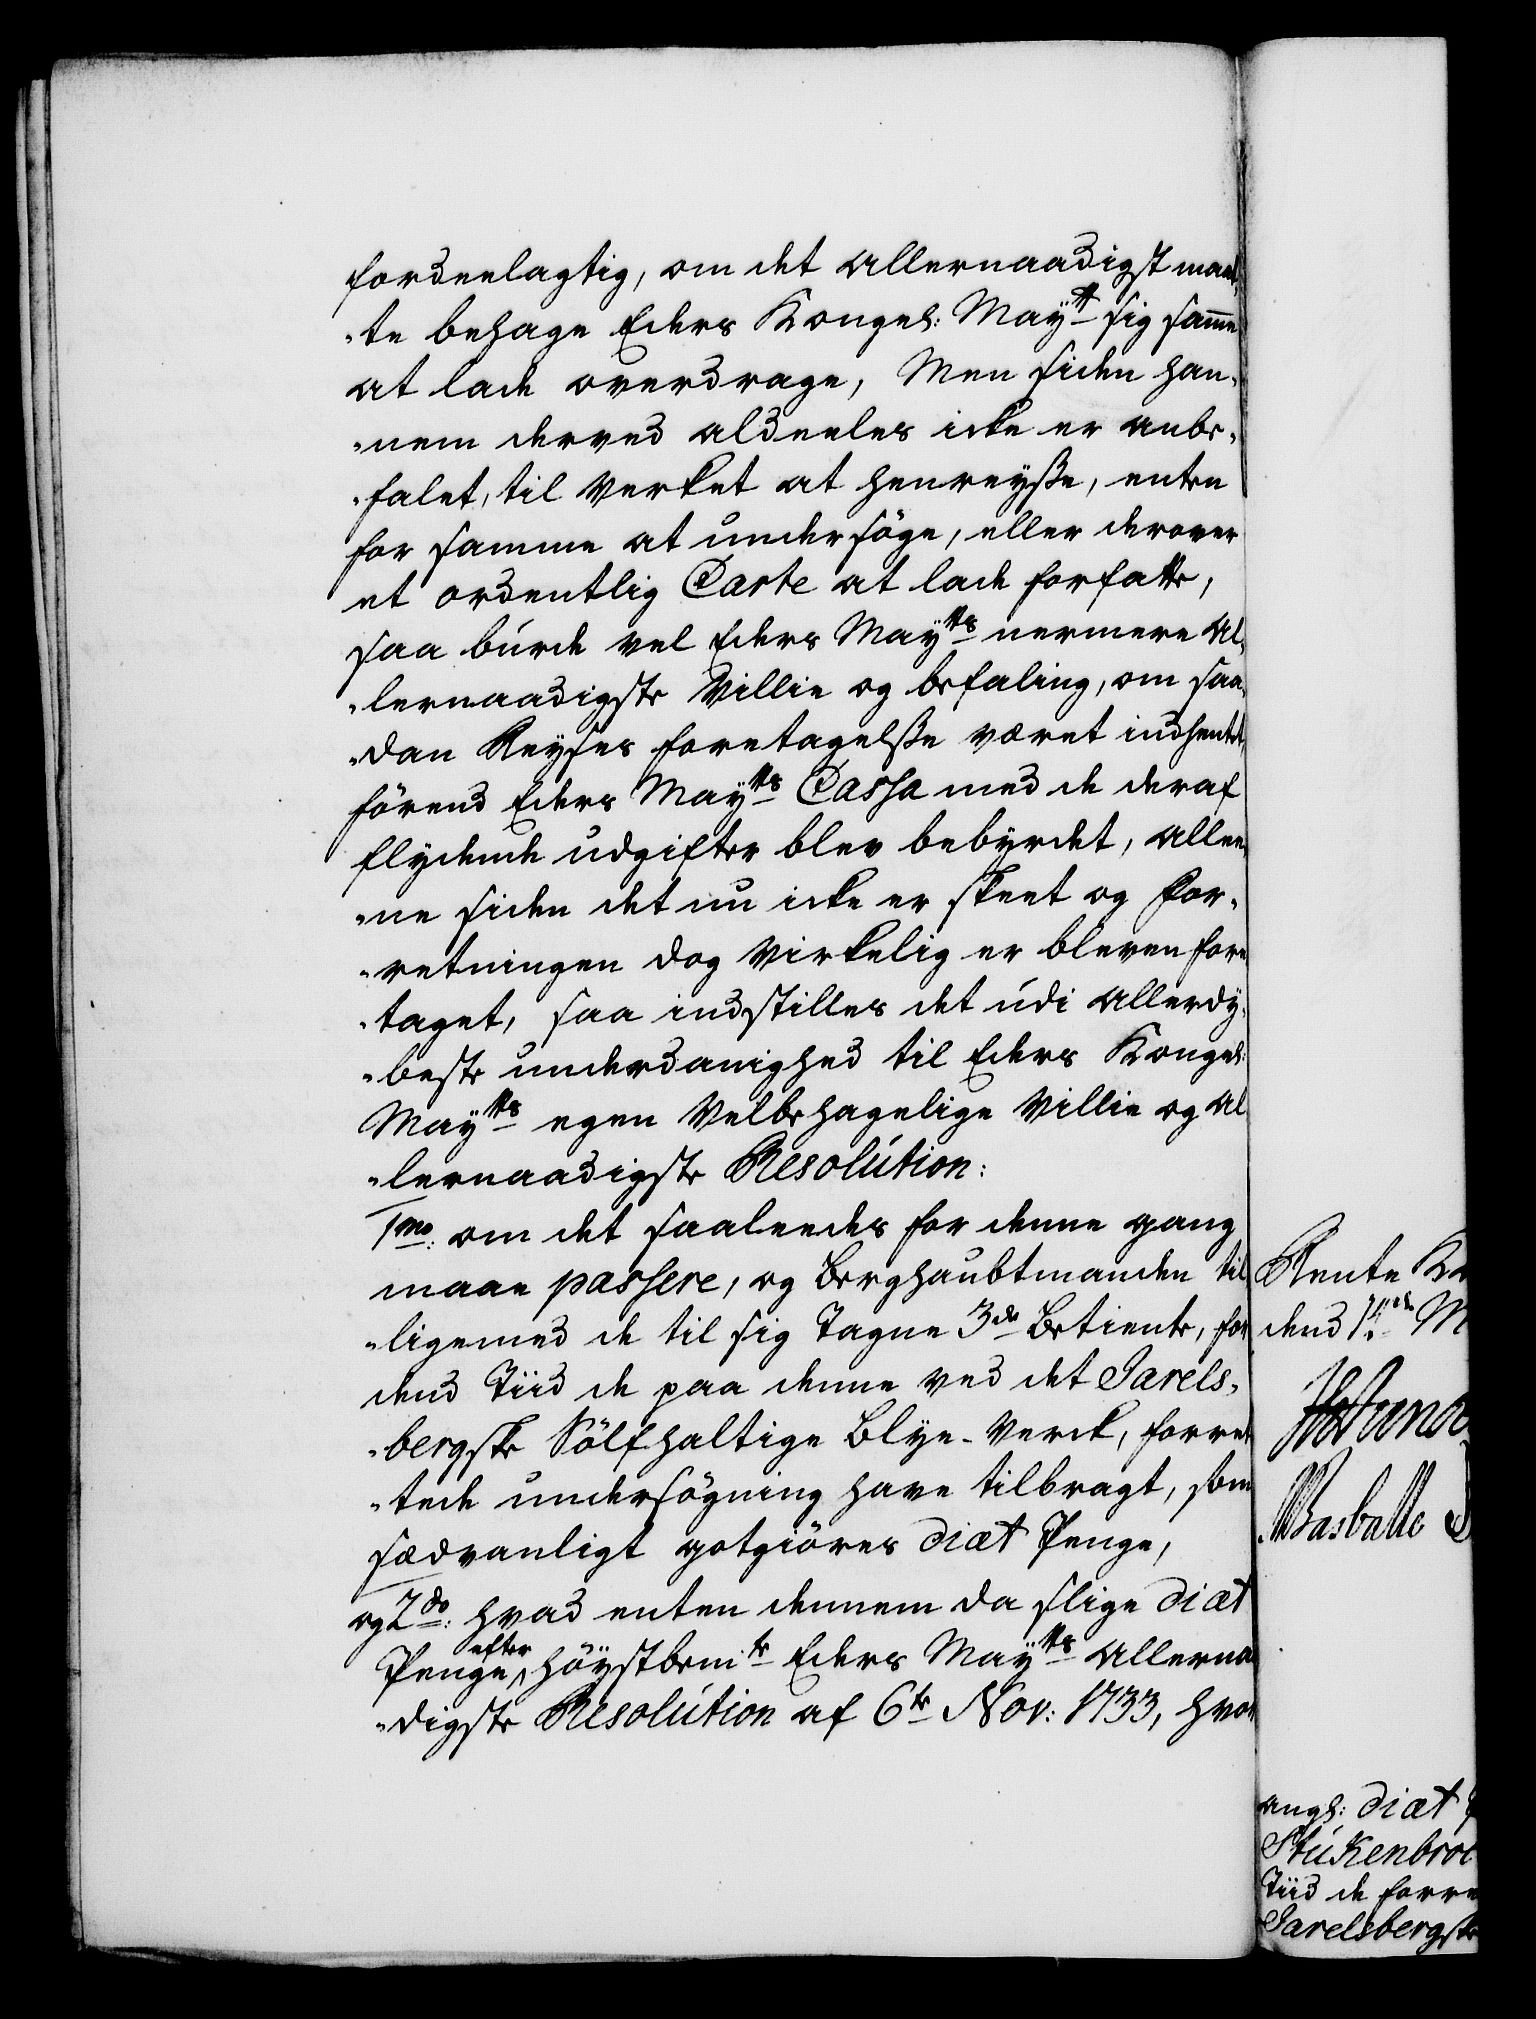 fordeelagtig, om det allernaadigst maat,
„te behage Eders Kongel: Maytt sig samme
at lade overdrage, Men siden han„
„nem derved aldeeles icke er anbe„
„falet, til Verket at henreyße, enten
for samme at undersöge, eller derover
et ordentlig Carte at lade forfatte,
saa burde vel Eders Maytts nermere Al„
„lernaadigste Villie og befaling, om saa„
„dan Reyses foretagelße været indhentet,
förend Eders Maytts Cassa med de deraf
flydende udgifter blev bebyrdet, allee„
„ne siden det nu icke er skeet og For„
„retningen dog Virkelig er bleven fore
„taget, saa indstilles det udi allerdy„
„beste underdanighed til Eders Kongel:
Maytts egen Velbehagelige Villie og al„
„lernaadigste Resolution:
1mo: om det saaleedes for denne gang
maae passere, og Berghaubtmanden til
„ligemed de til sig Tagne 3de Betiente, for
dend Tiid de paa denne ved det Jarels„
„bergske Sölfhaltige Blye-Verck, forret
„tede undersögning have tilbragt, som
sædvanligt gotgiöres diæt Penge,
og 2do: hvad enten dennem da slige diæt
Penge efter höystbemte Eders Maytts Allerna
„digste Resolution af 6te Nov: 1733, hvor
Rente K
dend
Basballe
angl: diæt
Stukenbroc
Tiid de forre
Jarelsbergske